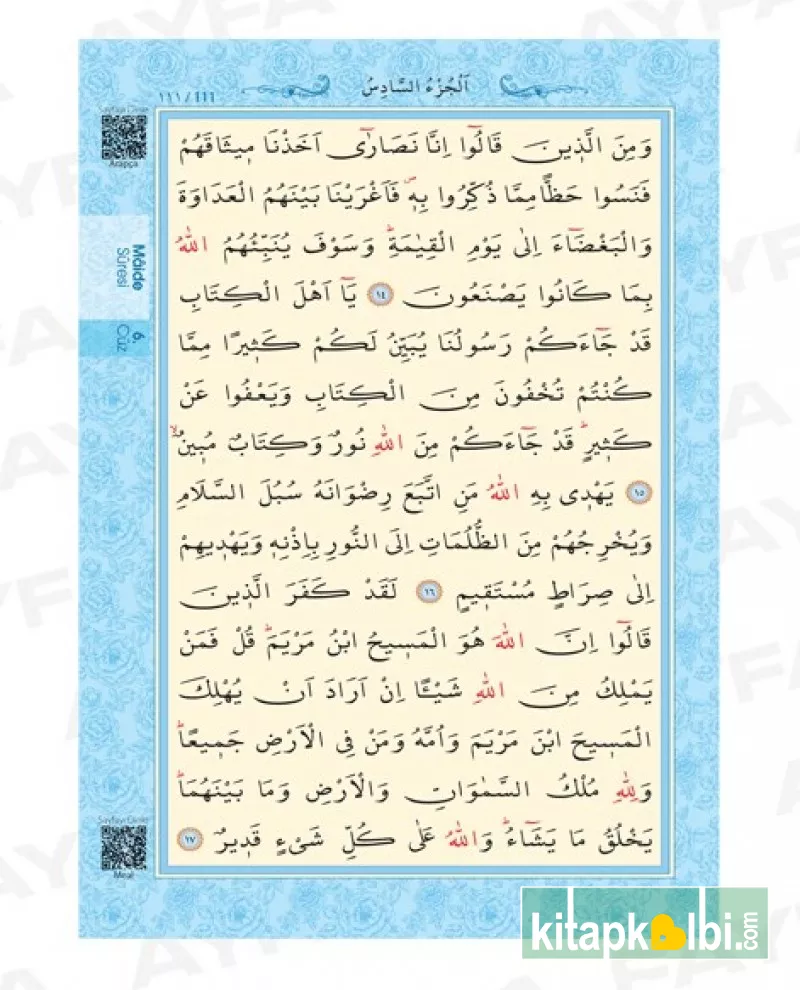 اَلْجُزْءُ السَّادِسُ
١١١ / 111
Sayfayı Dinle
Arapça
Mâide
Sûresi
6.
Cüz
وَمِنَ الَّذ۪ينَ قَالُٓوا اِنَّا نَصَارٰٓى اَخَذْنَا م۪يثَاقَهُمْ
فَنَسُوا حَظًّا مِمَّا ذُكِّرُوا بِه۪ۖ فَاَغْرَيْنَا بَيْنَهُمُ الْعَدَاوَةَ
وَالْبَغْضَٓاءَ اِلٰى يَوْمِ الْقِيٰمَةِۜ وَسَوْفَ يُنَبِّئُهُمُ اللّٰهُ
بِمَا كَانُوا يَصْنَعُونَ ﴿١٤﴾ يَٓا اَهْلَ الْكِتَابِ
قَدْ جَٓاءَكُمْ رَسُولُنَا يُبَيِّنُ لَكُمْ كَث۪يرًا مِمَّا
كُنْتُمْ تُخْفُونَ مِنَ الْكِتَابِ وَيَعْفُوا عَنْ
كَث۪يرٍۜ قَدْ جَٓاءَكُمْ مِنَ اللّٰهِ نُورٌ وَكِتَابٌ مُب۪ينٌۙ
﴿١٥﴾ يَهْد۪ي بِهِ اللّٰهُ مَنِ اتَّبَعَ رِضْوَانَهُ سُبُلَ السَّلَامِ
وَيُخْرِجُهُمْ مِنَ الظُّلُمَاتِ اِلَى النُّورِ بِاِذْنِه۪ وَيَهْد۪يهِمْ
اِلٰى صِرَاطٍ مُسْتَق۪يمٍ ﴿١٦﴾ لَقَدْ كَفَرَ الَّذ۪ينَ
قَالُٓوا اِنَّ اللّٰهَ هُوَ الْمَس۪يحُ ابْنُ مَرْيَمَۜ قُلْ فَمَنْ
يَمْلِكُ مِنَ اللّٰهِ شَيْـًٔا اِنْ اَرَادَ اَنْ يُهْلِكَ
الْمَس۪يحَ ابْنَ مَرْيَمَ وَاُمَّهُ وَمَنْ فِي الْاَرْضِ جَم۪يعًاۜ
وَلِلّٰهِ مُلْكُ السَّمٰوَاتِ وَالْاَرْضِ وَمَا بَيْنَهُمَاۜ
يَخْلُقُ مَا يَشَٓاءُۜ وَاللّٰهُ عَلٰى كُلِّ شَيْءٍ قَد۪يرٌ ﴿١٧﴾
Sayfayı Dinle
Meal
kitapkalbi.com
AYFA